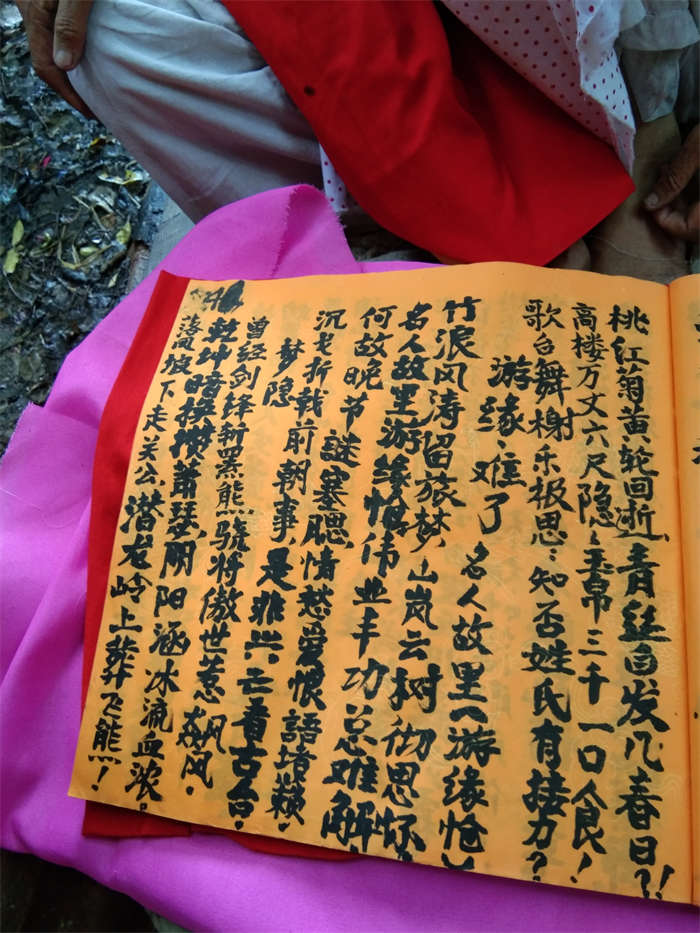 桃红菊黄轮回逝,青丝白发几春日?!
高楼万丈六尺隐,玉帛三千一口食!
歌台舞榭乐极思:知否姓氏有接力?
游缘、难了 名人故里《游缘怆》
竹浪风涛留旅梦,山岚云树彻思怀.
名人故里游缘恨伟业丰功总难解!
何故晚节谜塞腮,情愁爱恨語堵赖.
沉戈折戟前朝事,是非兴亡看古台.
梦隐
曾经剑锋斩罴熊骁将傲世惹飙风.
乾坤暗接横萧瑟,阴阳涵冰流血浓。
落凤坡下走关公,潜龙岭上葬飞熊!